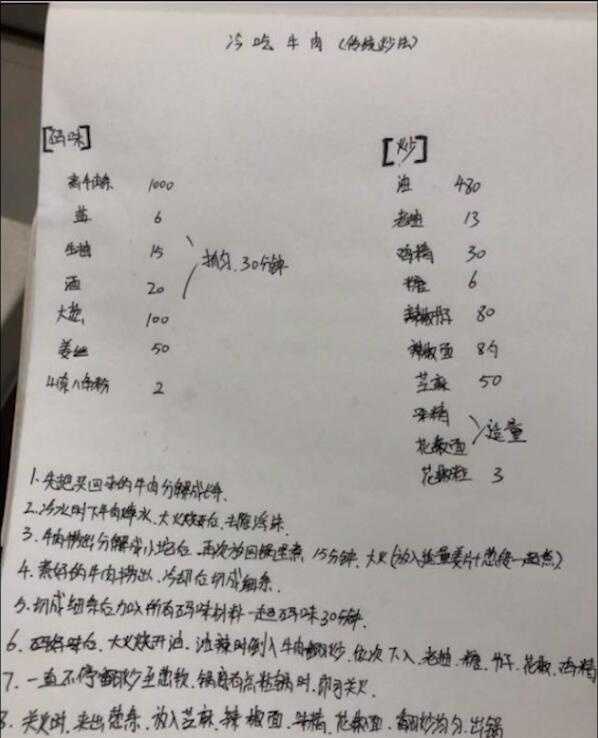 冷吃牛肉（传统炒法）
[码味]
牛肉条 1000
盐 6
生抽 15
酒 20
抓匀.30分钟
大葱 100
姜 50
八角粉 2
[炒]
油 480
老抽 13
鸡精 30
糖 6
辣椒仔 80
辣椒面 8
芝麻 50
味精
花椒面
适量
花椒粒 3
1.先把买回来的牛肉分解成
2.冷水时下牛肉焯水.大火烧开后.去除浮沫.
3.牛肉捞出分解成小坨后.再次放回锅里煮.15分钟.大火(放入适量姜片+葱 一起煮)
4.煮好的牛肉捞出.冷却后切成细条.
5.切成细条后加入所有码味材料一起码味30分钟.
6.码好味后.大火烧开油.油辣时倒入牛肉翻炒.依次下入.老抽.糖.籽.花椒.鸡精
7.一直不停翻炒至 软.锅 有点粘锅时.即可关火.
8.关火时.夹出葱条.放入芝麻.辣椒面.味精.花椒面.翻炒均匀.出锅